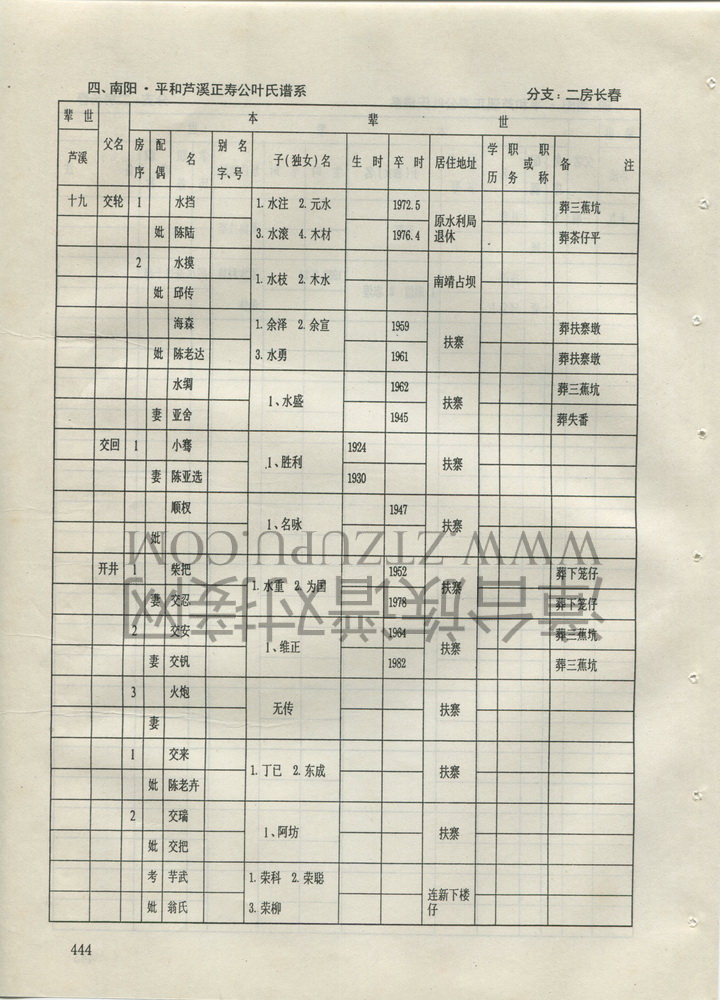 四、南阳·平和芦溪正寿公叶氏谱系 分支：二房长春
辈世 本辈世
芦溪 父名 房序 配偶 名 别名字、号 子(独女)名 生时 卒时 居住地址 学历 职务或职称 备注
十九 交轮 1 水挡 1.水注 2.元水 1972.5 原水利局退休 葬三蕉坑
妣 陈陆 3.水滚 4.木材 1976.4 葬茶仔平
2 水摸 1.水枝 2.木水 南靖占坝
妣 邱传
海森 1.余泽 2.余宣 1959 扶寨 葬扶寨墩
妣 陈老达 3.水勇 1961 葬扶寨墩
水绸 1、水盛 1962 扶寨 葬三蕉坑
妻 亚舍 1945 葬失番
交回 1 小骞 1、胜利 1924 扶寨
妻 陈亚选 1930
顺权 1、名咏 1947 扶寨
妣
开井 1 柴把 1.水重 2.为国 1952 扶寨 葬下笼仔
妻 交忍 1978 葬下笼仔
2 交安 1、维正 1964 扶寨 葬三蕉坑
妻 交钒 1982 葬三蕉坑
3 火炮 无传 扶寨
妻
1 交来 1.丁已 2.东成 扶寨
妣 陈老卉
2 交瑞 1、阿坊 扶寨
妣 交把
考 芋武 1.荣科 2.荣聪 连新下楼仔
妣 翁氏 3.荣柳
444
漳台族谱对接网
WWW.ZTZUPU.COM